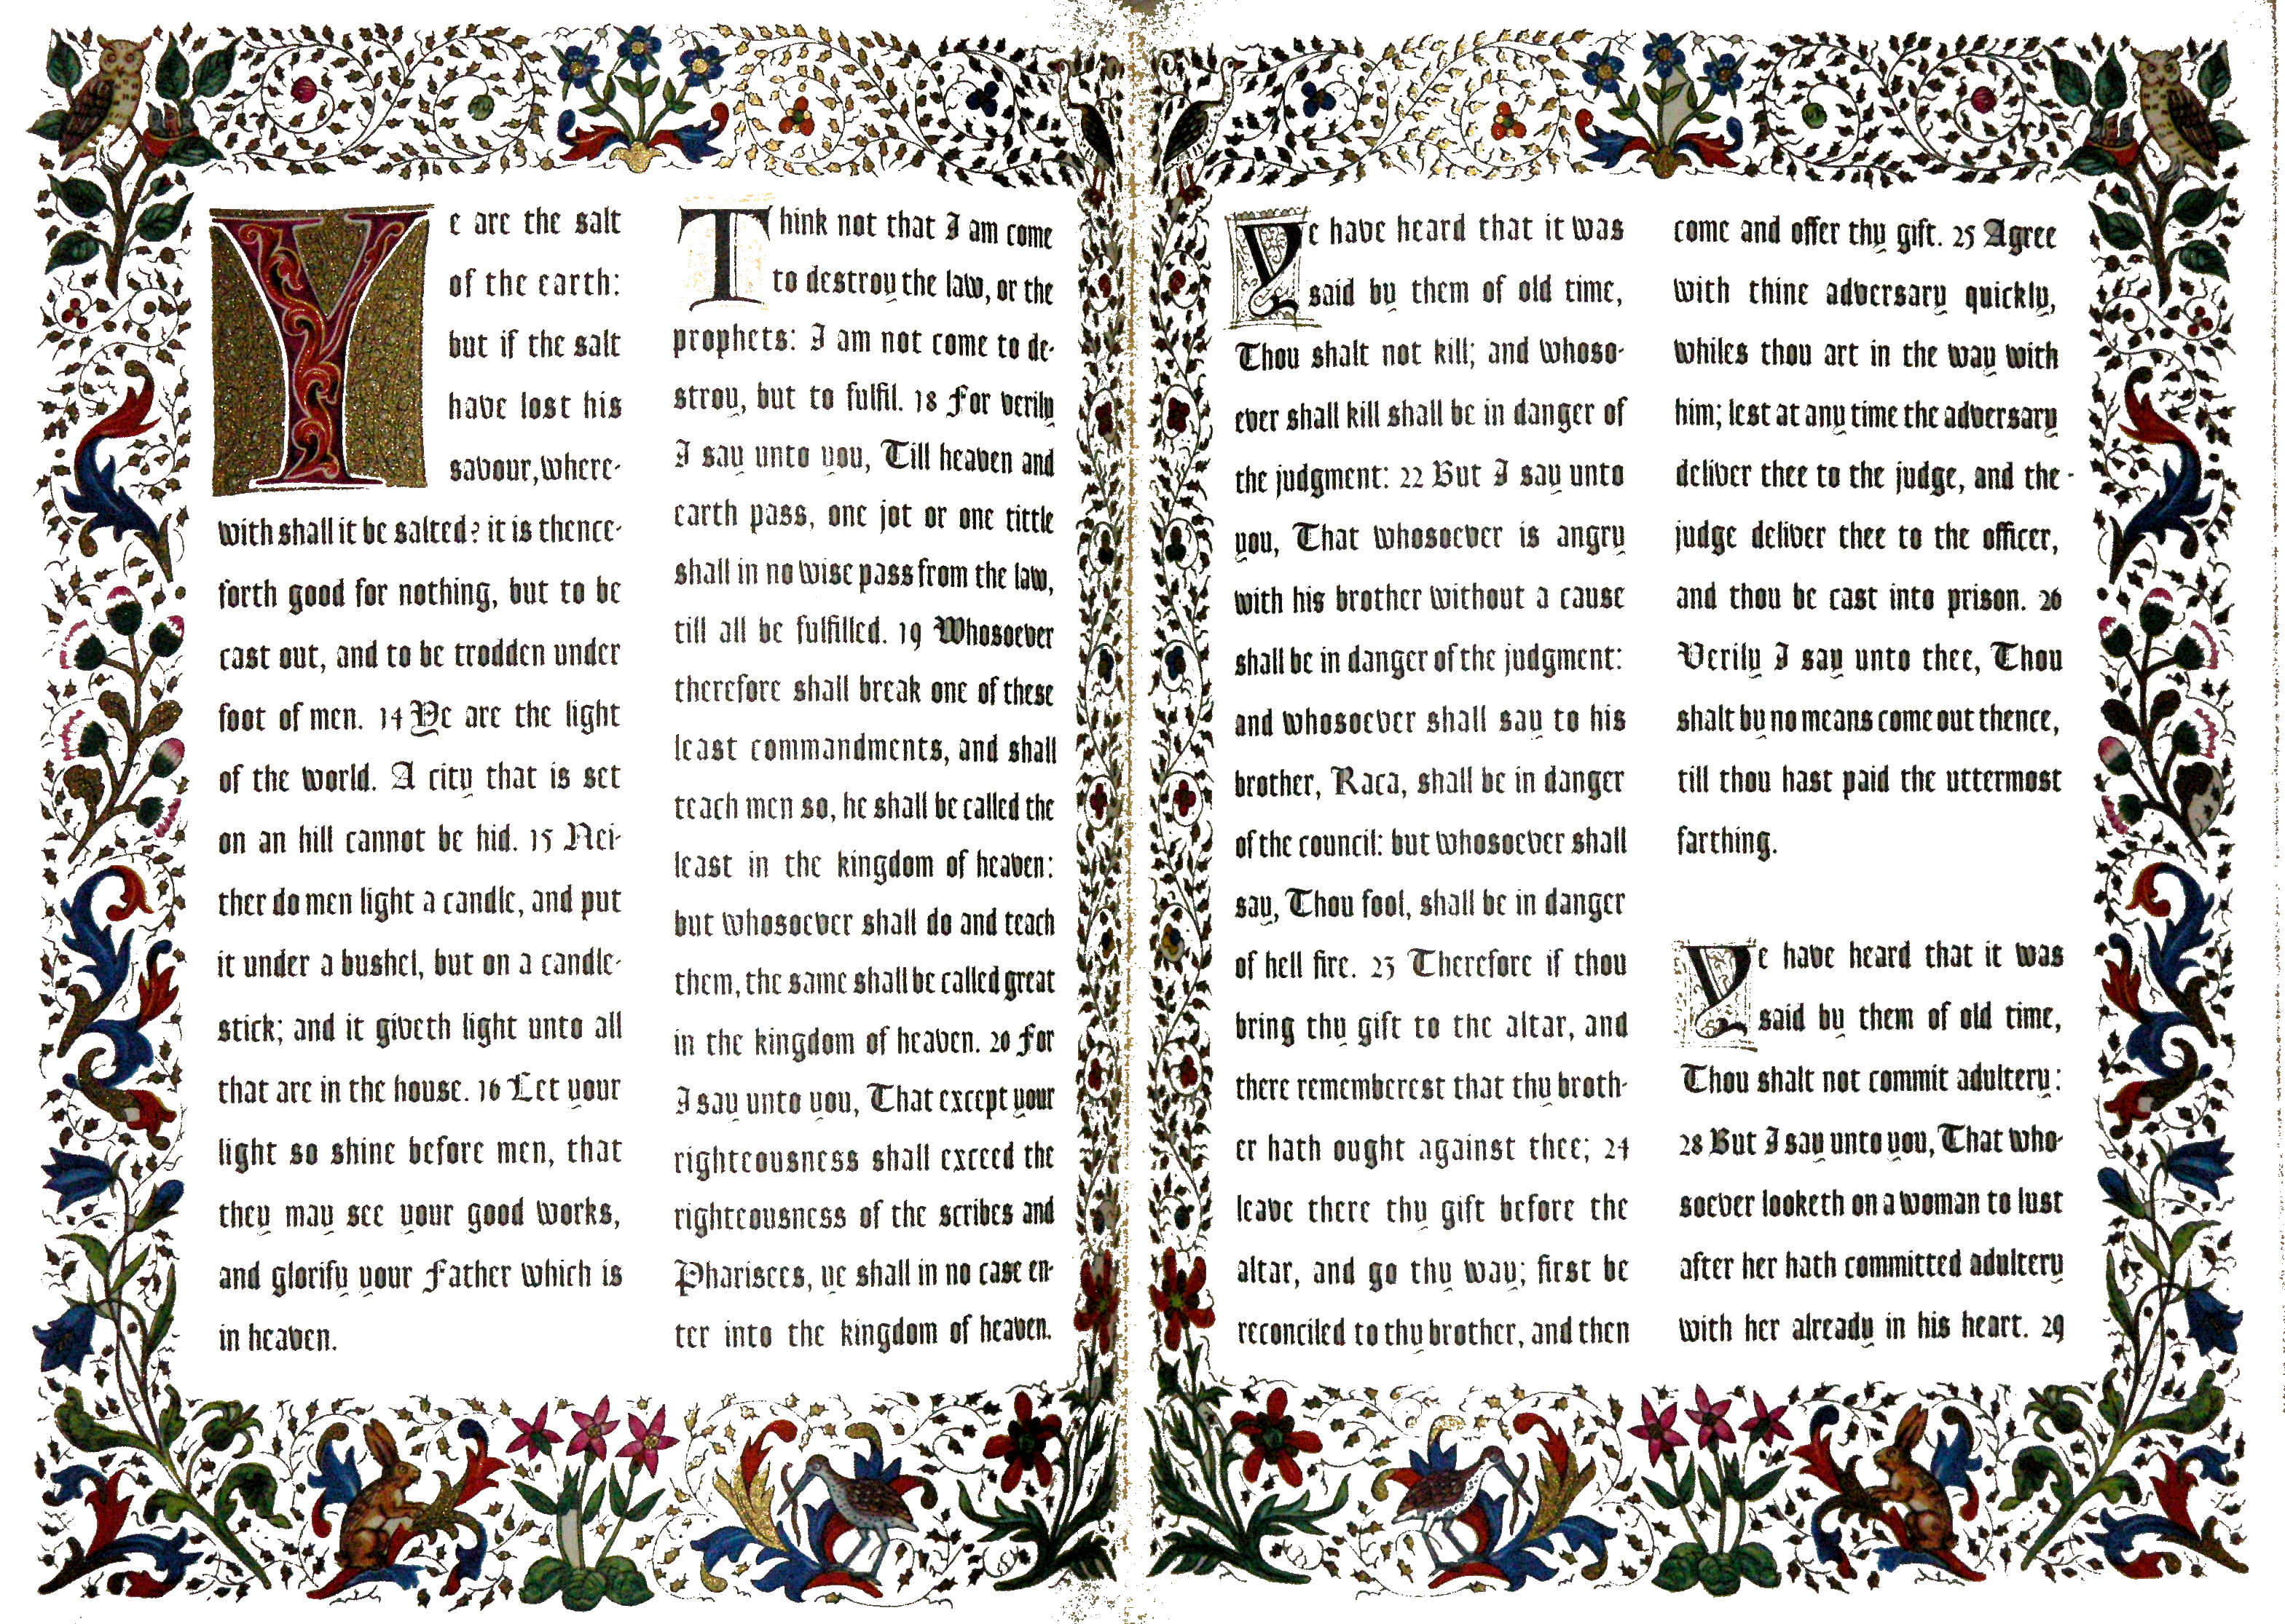 Ye are the salt
of the earth:
but if the salt
have lost his
savour, where-
with shall it be salted? it is thence-
forth good for nothing, but to be
cast out, and to be trodden under
foot of men. 14 Ye are the light
of the world. A city that is set
on an hill cannot be hid. 15 Nei-
ther do men light a candle, and put
it under a bushel, but on a candle-
stick; and it giveth light unto all
that are in the house. 16 Let your
light so shine before men, that
they may see your good works,
and glorify your Father which is
in heaven.
Think not that I am come
to destroy the law, or the
prophets: I am not come to de-
stroy, but to fulfil. 18 For verily
I say unto you, Till heaven and
earth pass, one jot or one tittle
shall in no wise pass from the law,
till all be fulfilled. 19 Whosoever
therefore shall break one of these
least commandments, and shall
teach men so, he shall be called the
least in the kingdom of heaven:
but whosoever shall do and teach
them, the same shall be called great
in the kingdom of heaven. 20 For
I say unto you, That except your
righteousness shall exceed the
righteousness of the scribes and
Pharisees, ye shall in no case en-
ter into the kingdom of heaven.
Ye have heard that it was
said by them of old time,
Thou shalt not kill; and whoso-
ever shall kill shall be in danger of
the judgment: 22 But I say unto
you, That whosoever is angry
with his brother without a cause
shall be in danger of the judgment:
and whosoever shall say to his
brother, Raca, shall be in danger
of the council: but whosoever shall
say, Thou fool, shall be in danger
of hell fire. 23 Therefore if thou
bring thy gift to the altar, and
there rememberest that thy broth-
er hath ought against thee; 24
leave there thy gift before the
altar, and go thy way; first be
reconciled to thy brother, and then
come and offer thy gift. 25 Agree
with thine adversary quickly,
whiles thou art in the way with
him; lest at any time the adversary
deliver thee to the judge, and the-
judge deliver thee to the officer,
and thou be cast into prison. 26
Verily I say unto thee, Thou
shalt by no means come out thence,
till thou hast paid the uttermost
farthing.
Ye have heard that it was
said by them of old time,
Thou shalt not commit adultery:
28 But I say unto you, That who-
soever looketh on a woman to lust
after her hath committed adultery
with her already in his heart. 29